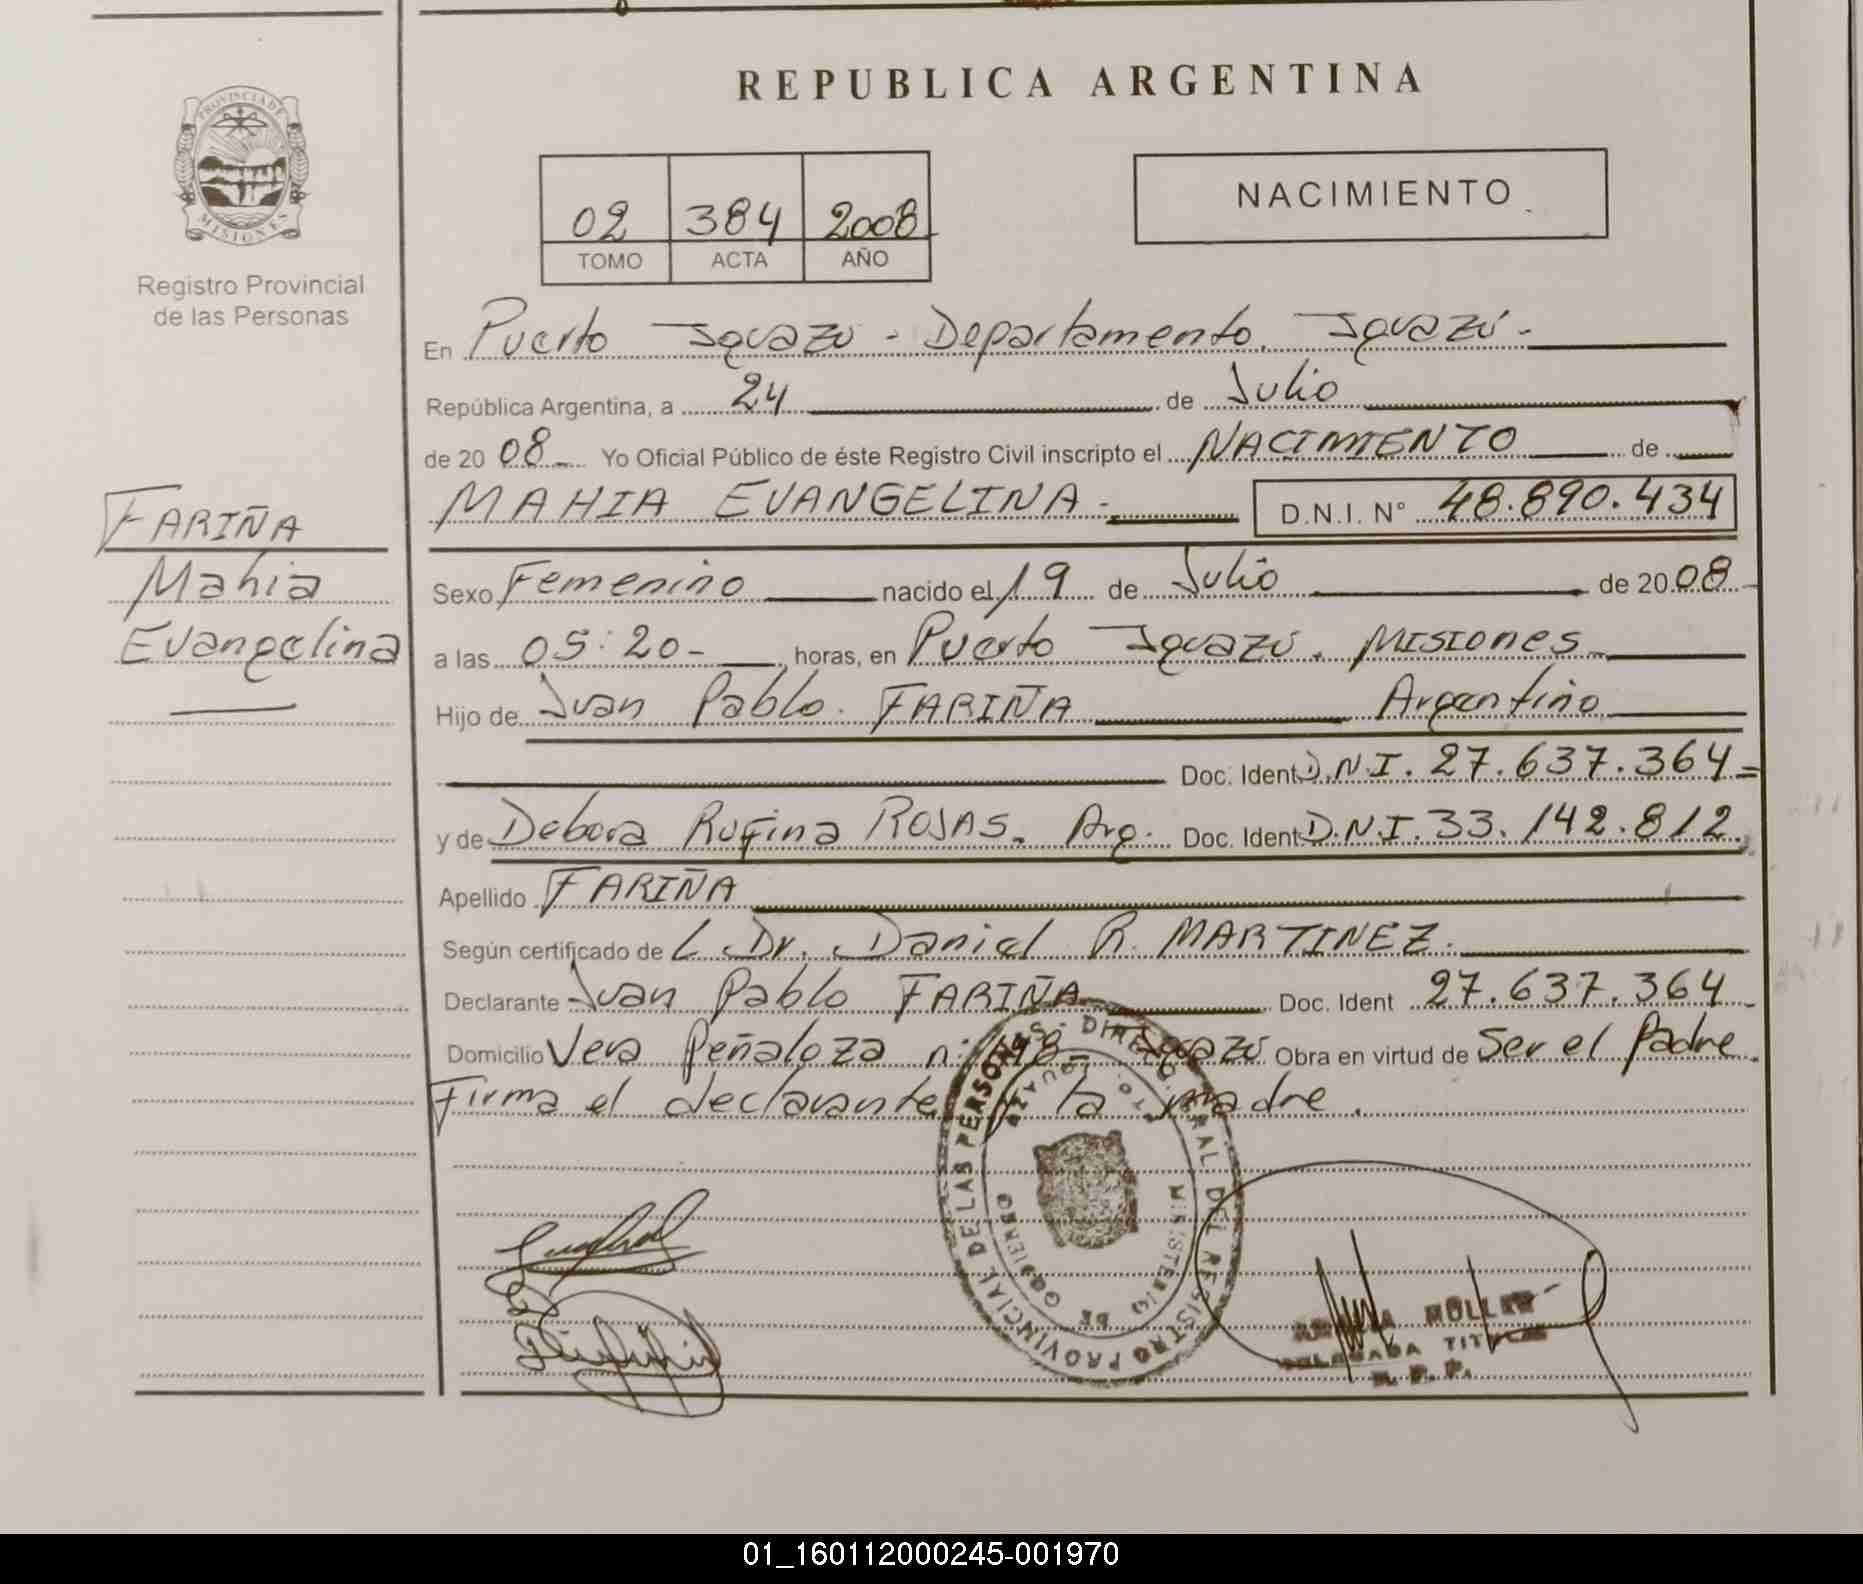 REPUBLICA ARGENTINA
PROVINCIA DE
MISIONES
Registro Provincial
de las Personas
02 384 2008
TOMO ACTA AÑO
NACIMIENTO
En Puerto Iguazú - Departamento. Iguazú.-
República Argentina, a 24 de Julio
de 2008- Yo Oficial Público de éste Registro Civil inscripto el NACIMIENTO de
MAHIA EVANGELINA.- D.N.I. N° 48.890.434
FARIÑA
Mahia
Evangelina
Sexo Femenino nacido el 19 de Julio de 2008-
a las 05:20- horas, en Puerto Iguazú. MISIONES
Hijo de Juan Pablo. FARIÑA Argentino
Doc. Ident D.N.I. 27.637.364-
y de Debora Rufina ROJAS. Arg. Doc. Ident D.N.I. 33.142.812.
Apellido FARIÑA
Según certificado de L Dr. Daniel R. MARTINEZ.
Declarante Juan Pablo FARIÑA Doc. Ident 27.637.364-
Domicilio Vera Peñaloza n: Iguazú Obra en virtud de Ser el Padre.
Firma el declarante y la madre.
DIRECCION GENERAL DEL REGISTRO PROVINCIAL DE LAS PERSONAS
MINISTERIO DE GOBIERNO
MULLER
DELEGADA TITULAR
R. P. P.
01_160112000245-001970